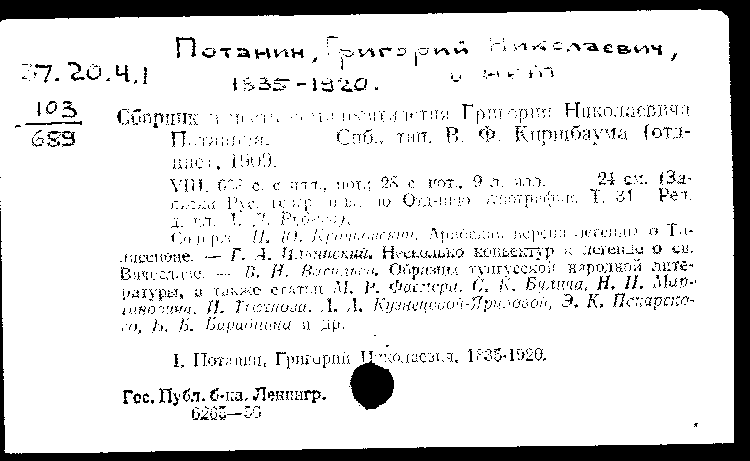 Потанин, Григорий Николаевич,
37.20.4.1
1835-1920.
103
689
Сборник в честь семидесятилетия Григория Николаевича
Потанина. Спб., тип. В. Ф. Киршбаума (отд-
ние), 1909.
VIII, с. с илл., нот.; 28 с. нот., 9 л. илл. 24 см. (За-
писки Рус. геогр. о-ва по Отд-нию этнографии. Т. 34. Ред.
А. Д. Руднев).
Содерж.: И. Ю. Крачковский. Арабская версия легенды о Та-
лассионе. — Г. А. Ильинский. Несколько конъектур к легенде о св.
Вячеславе. — В. Н. Васильев. Образцы тунгусской народной лите-
ратуры, а также статьи М. Р. Фасмера, С. К. Булича, Н. Н. Мар-
тиновича, И. А. А. Кузнецовой-Яриловой, Э. К. Пекарско-
го, Б. Б. Барадийна и др.
I. Потанин, Григорий Николаевич, 1835-1920.
Гос. Публ. б-ка. Ленингр.
6265—56